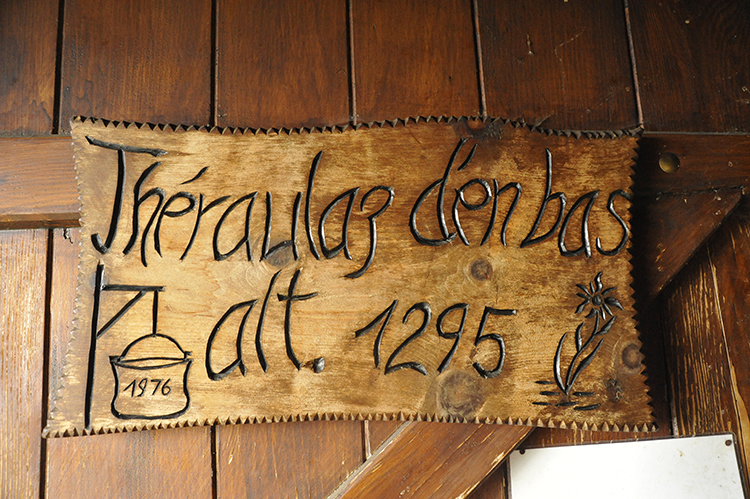 Théraulaz d'en bas
alt. 1295
1976